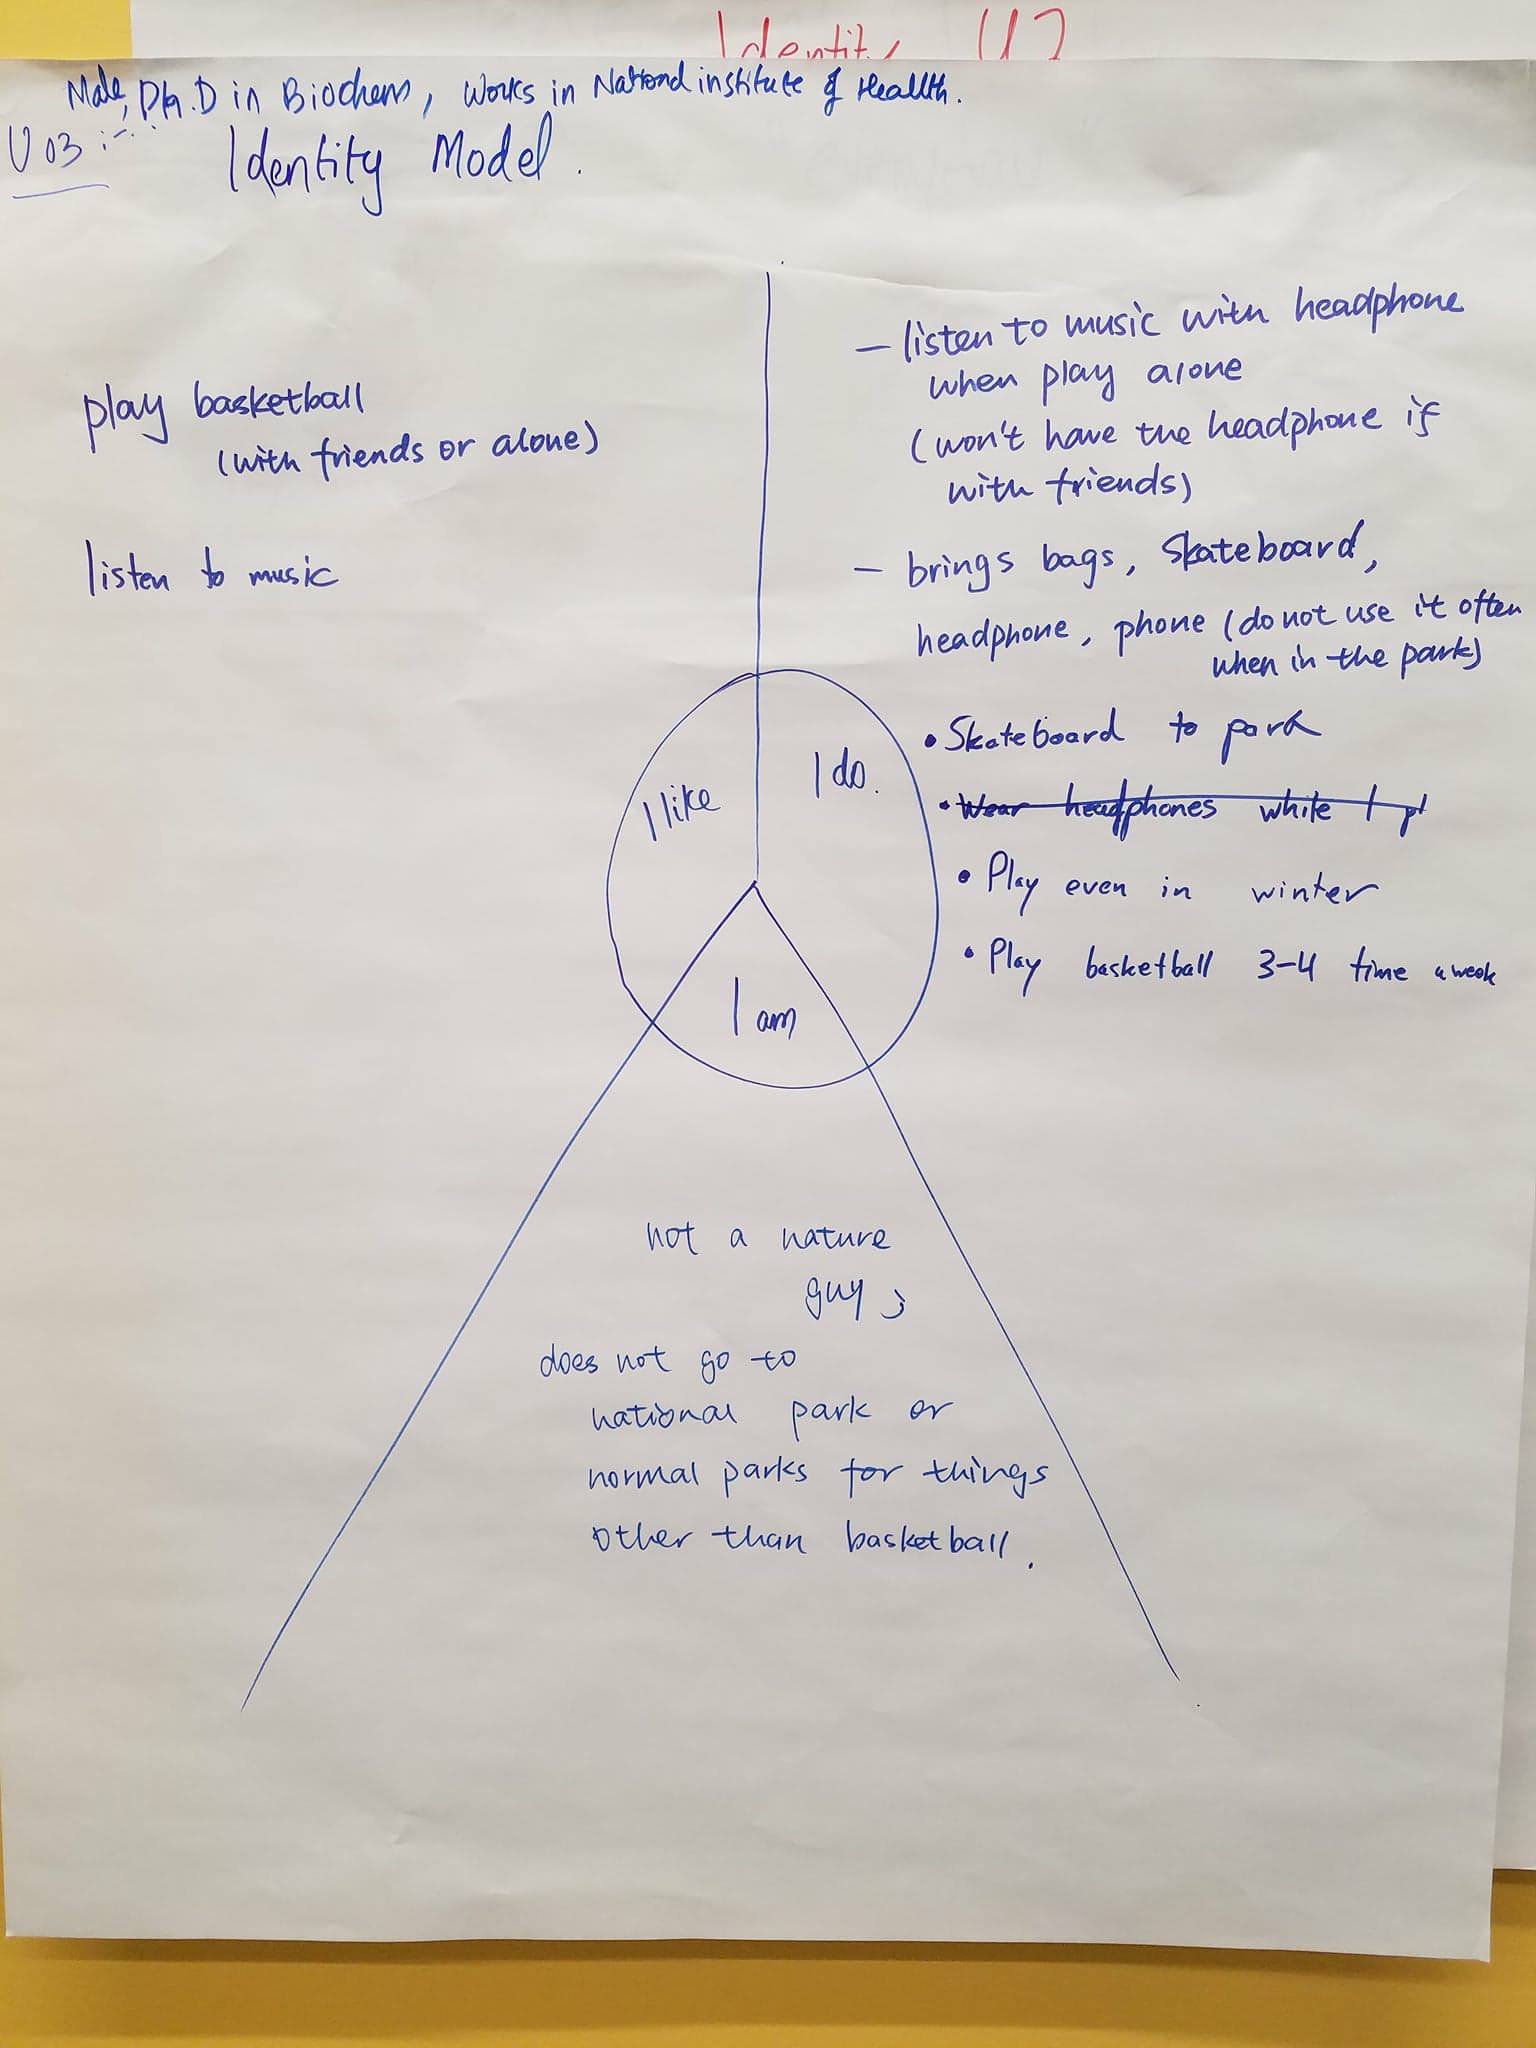 Identity U2
Male, Ph.D in Biochem, works in National institute of Heallth.
U03 :
Identity Model.
play basketball
(with friends or alone)
listen to music
— listen to music with headphone
when play alone
(won't have the headphone if
with friends)
— brings bags, skateboard,
headphone, phone (do not use it often
when in the park)
• Skateboard to park
• Wear headphones while I pl
• Play even in winter
• Play basketball 3-4 time a week
I like
I do.
I am
not a nature
guy;
does not go to
national park or
normal parks for things
other than basketball.